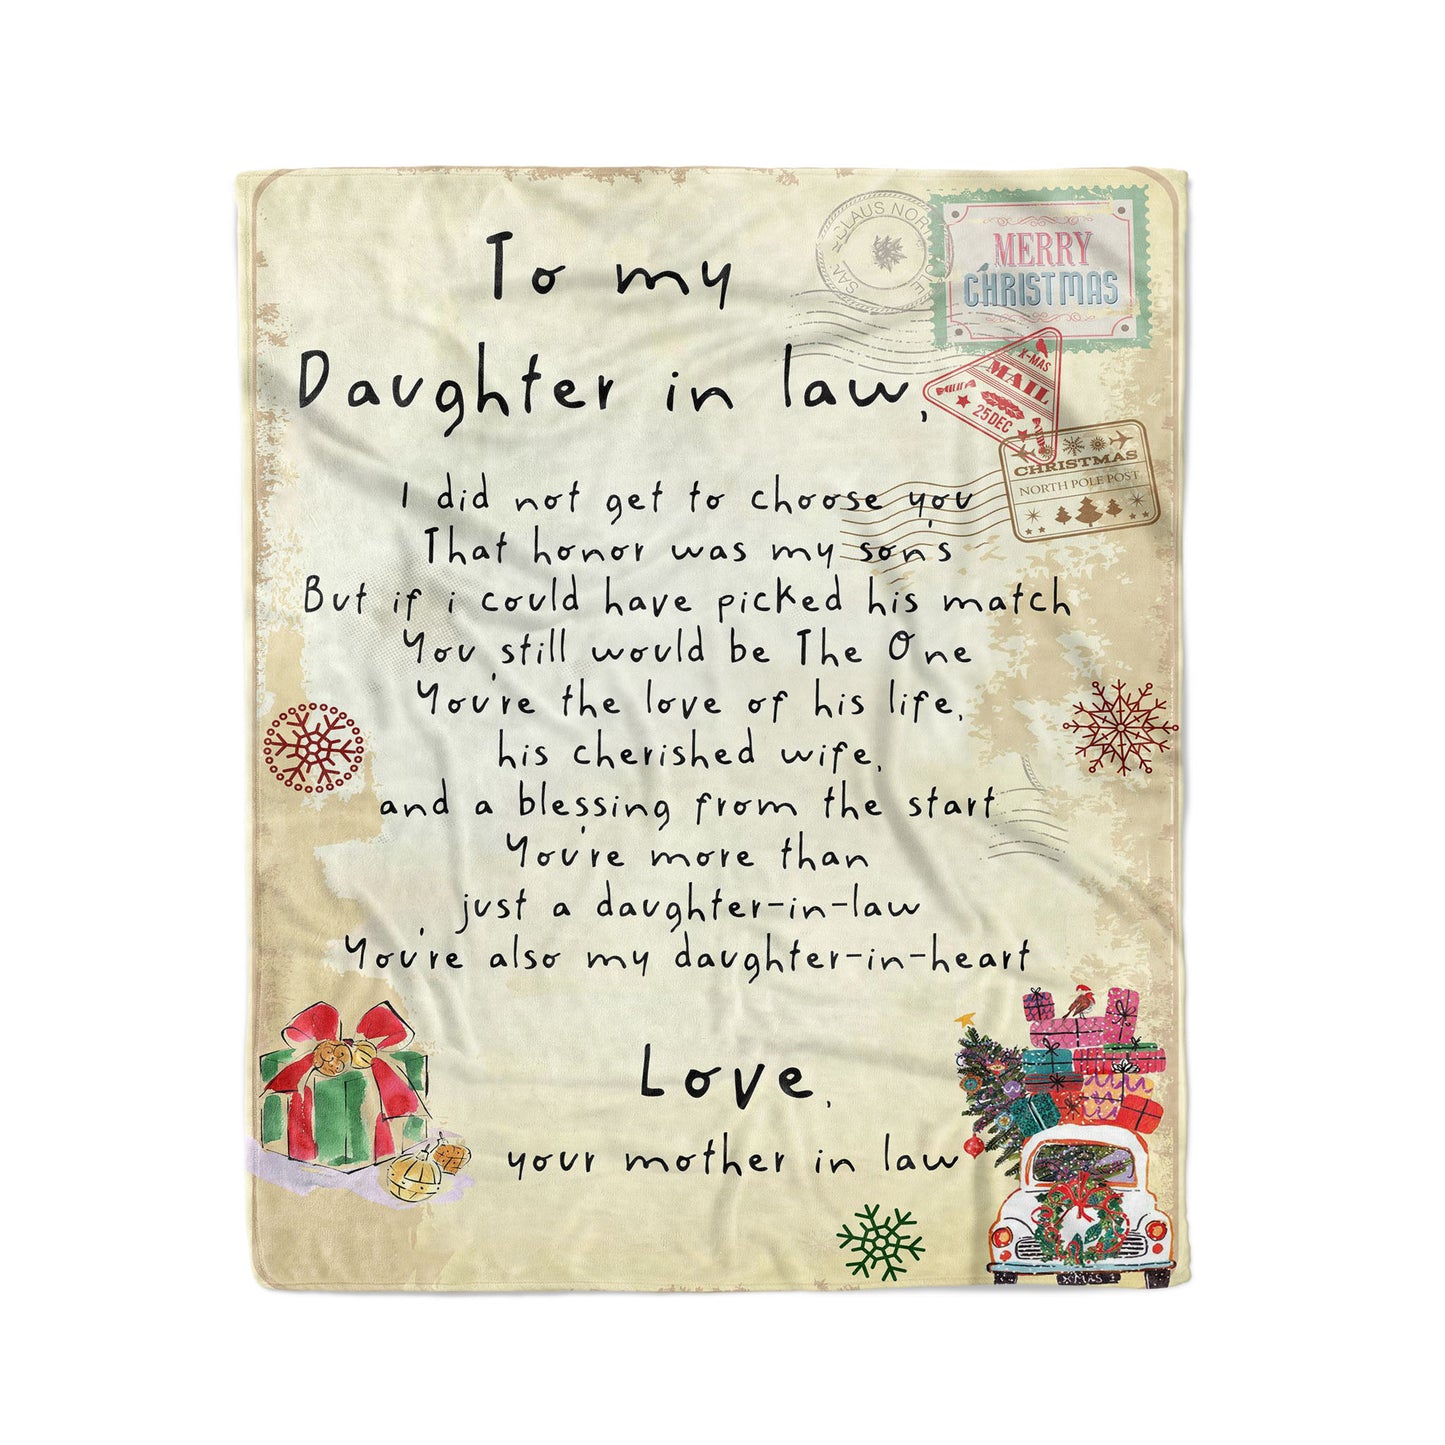 To my
Daughter in law,
I did not get to choose you
That honor was my son's
But if i could have picked his match
You still would be The One
You're the love of his life,
his cherished wife,
and a blessing from the start
You're more than
just a daughter-in-law
You're also my daughter-in-heart
Love,
your mother in law
CLAUS
MERRY
CHRISTMAS
X-MAS
MAIL
25DEC
CHRISTMAS
NORTH POLE POST
XMAS